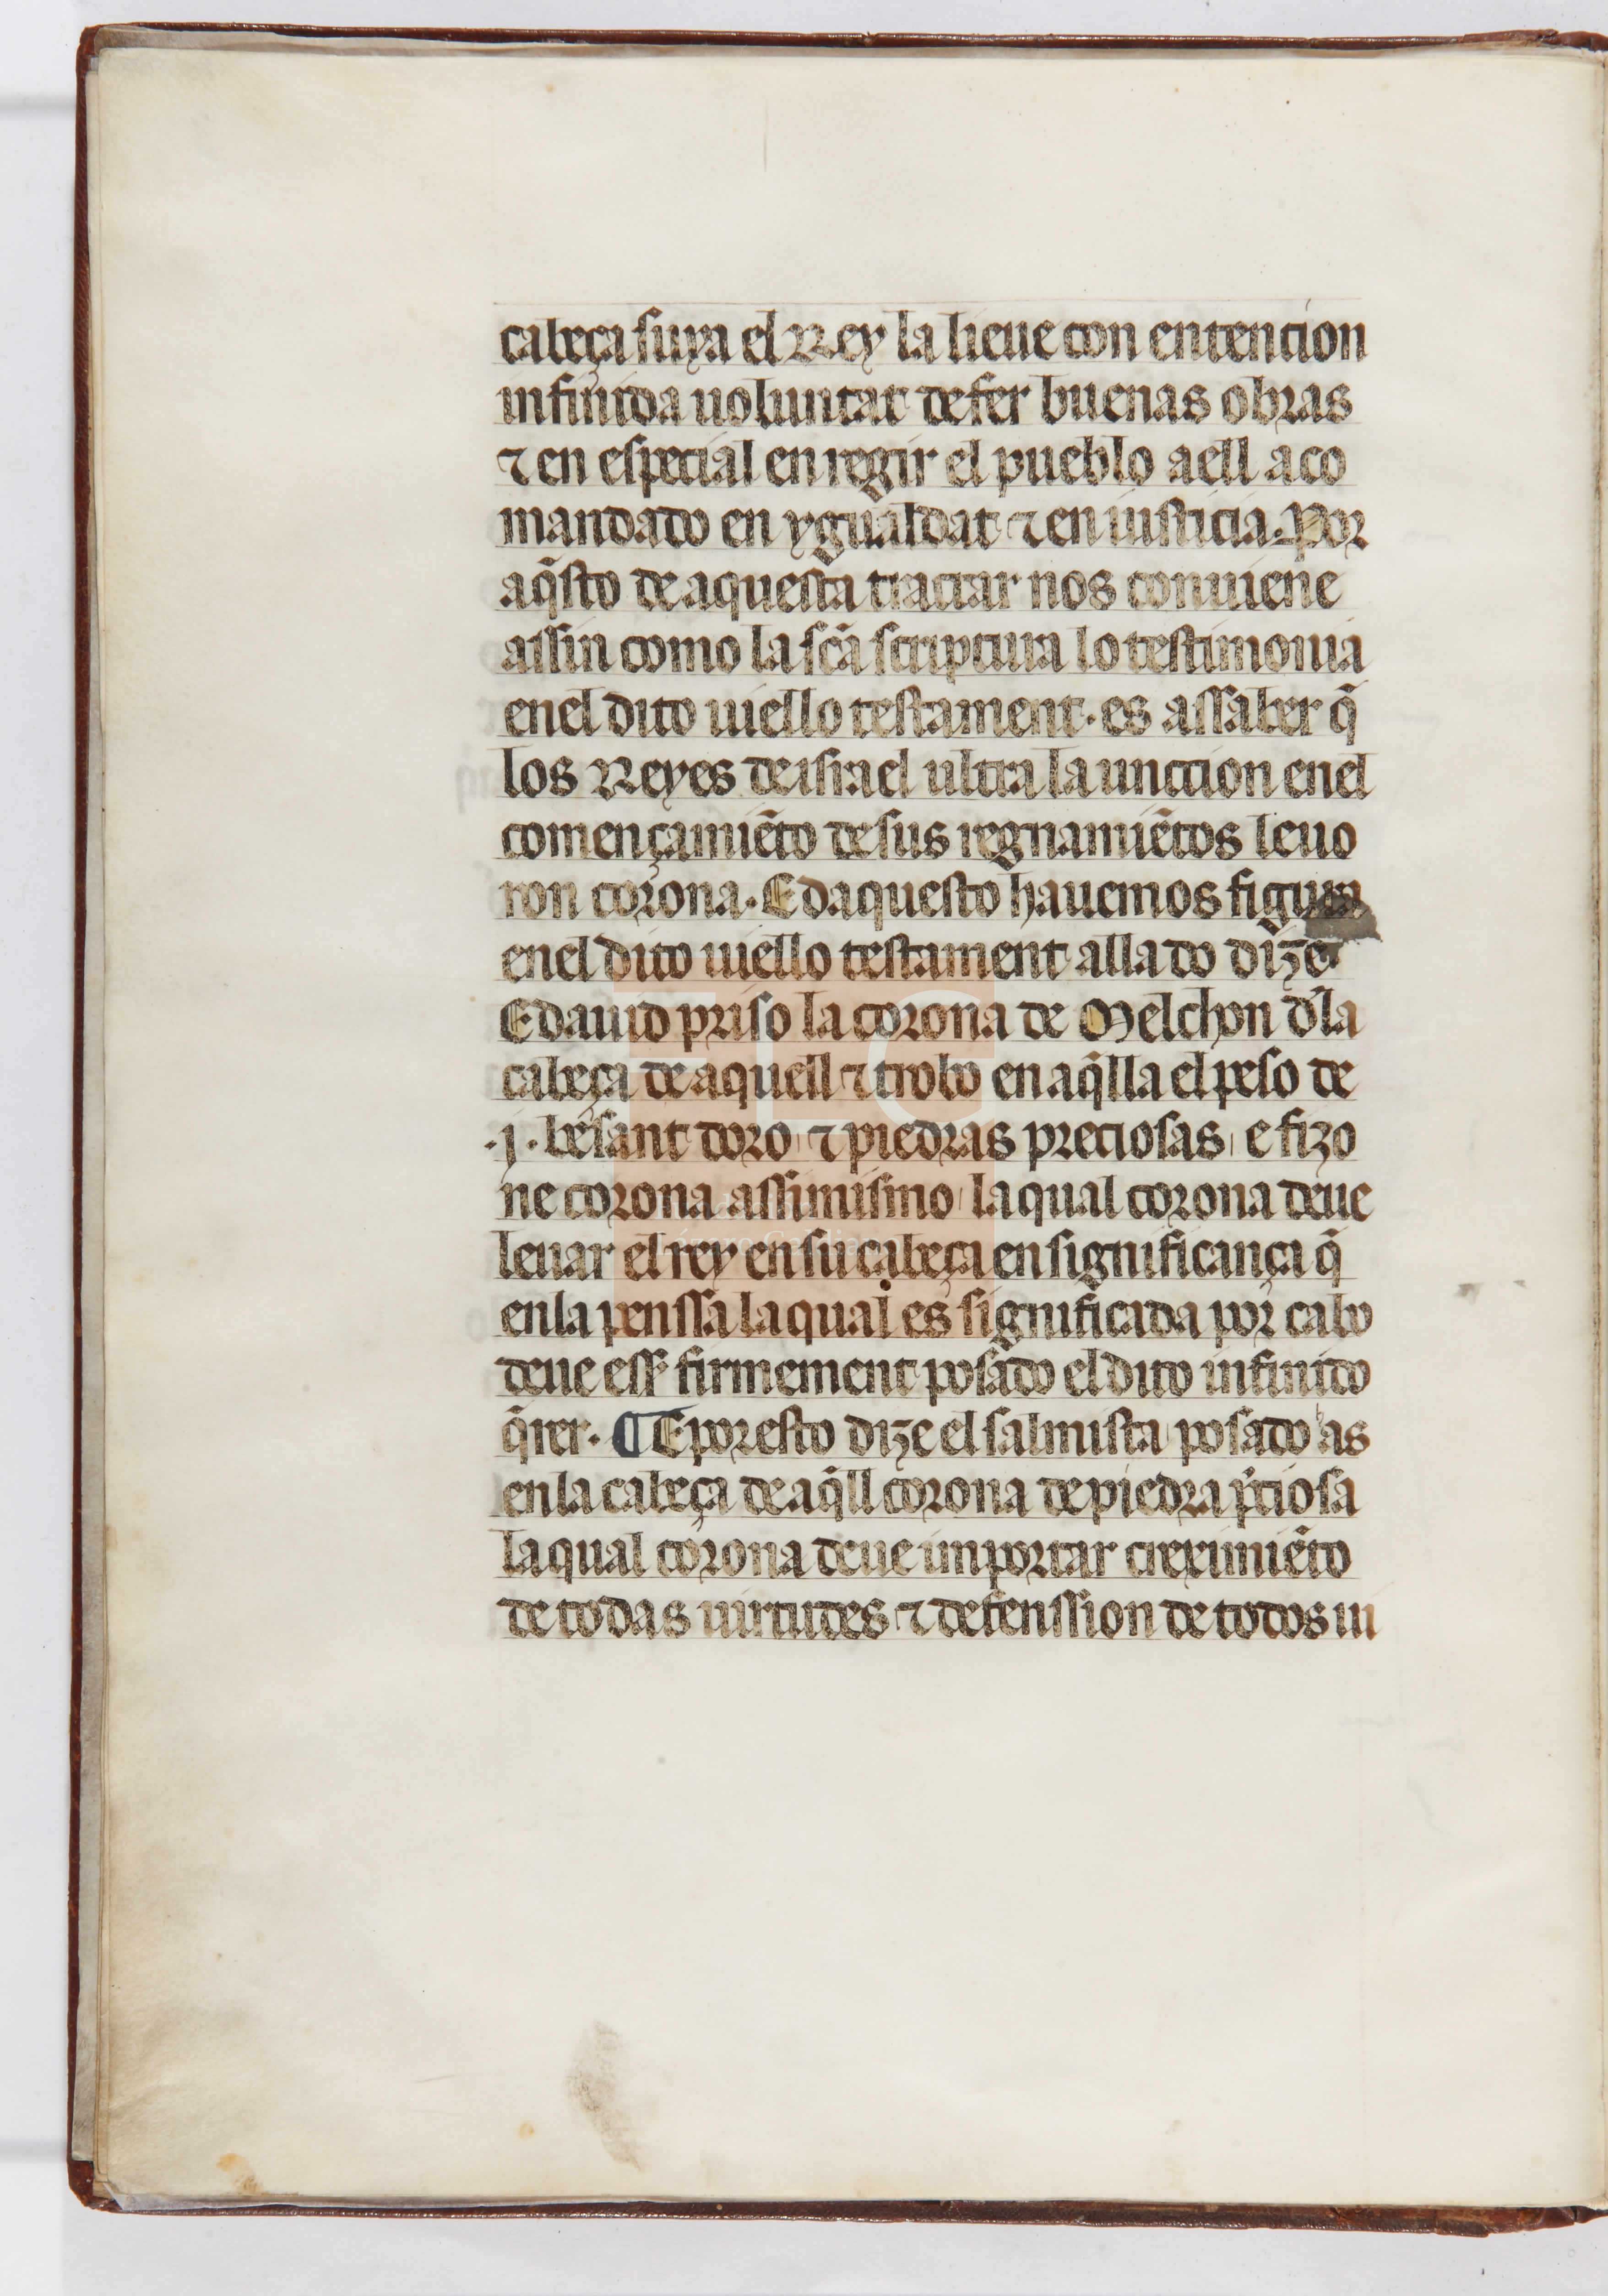 cabeça suya el Rey la lieue con entencion
infinida uoluntat de fer buenas obras
⁊ en especial en regir el pueblo a ell aco
mandado en ygualdat ⁊ en iusticia. Por
aq̄sto de aquesta tractar nos conuiene
assin como la sc̄a scriptura lo testimonia
en el dito uiello testament· es assaber q̄
los Reyes de israel ultra la unction en el
començamiēto de sus regnamiētos leuo
ron corona· E daquesto hauemos figura
en el dito uiello testament alla do dize
E dauid priso la corona de Melchon d'la
cabeça de aquell ⁊ trobo en aq̄lla el peso de
·j· besant doro ⁊ piedras preciosas e fizo
ne corona assimismo la qual corona deue
leuar el rey en su cabeça en significança q̄
en la penssa la qual es significada por cabo
deue ess̄ firmement posado el dito infinido
q̄rer· ¶ E por esto dize el salmista posado as
en la cabeça de aq̄ll corona de piedra p̄ciosa
la qual corona deue importar creximiēto
de todas uirtudes ⁊ defenssion de todos ui